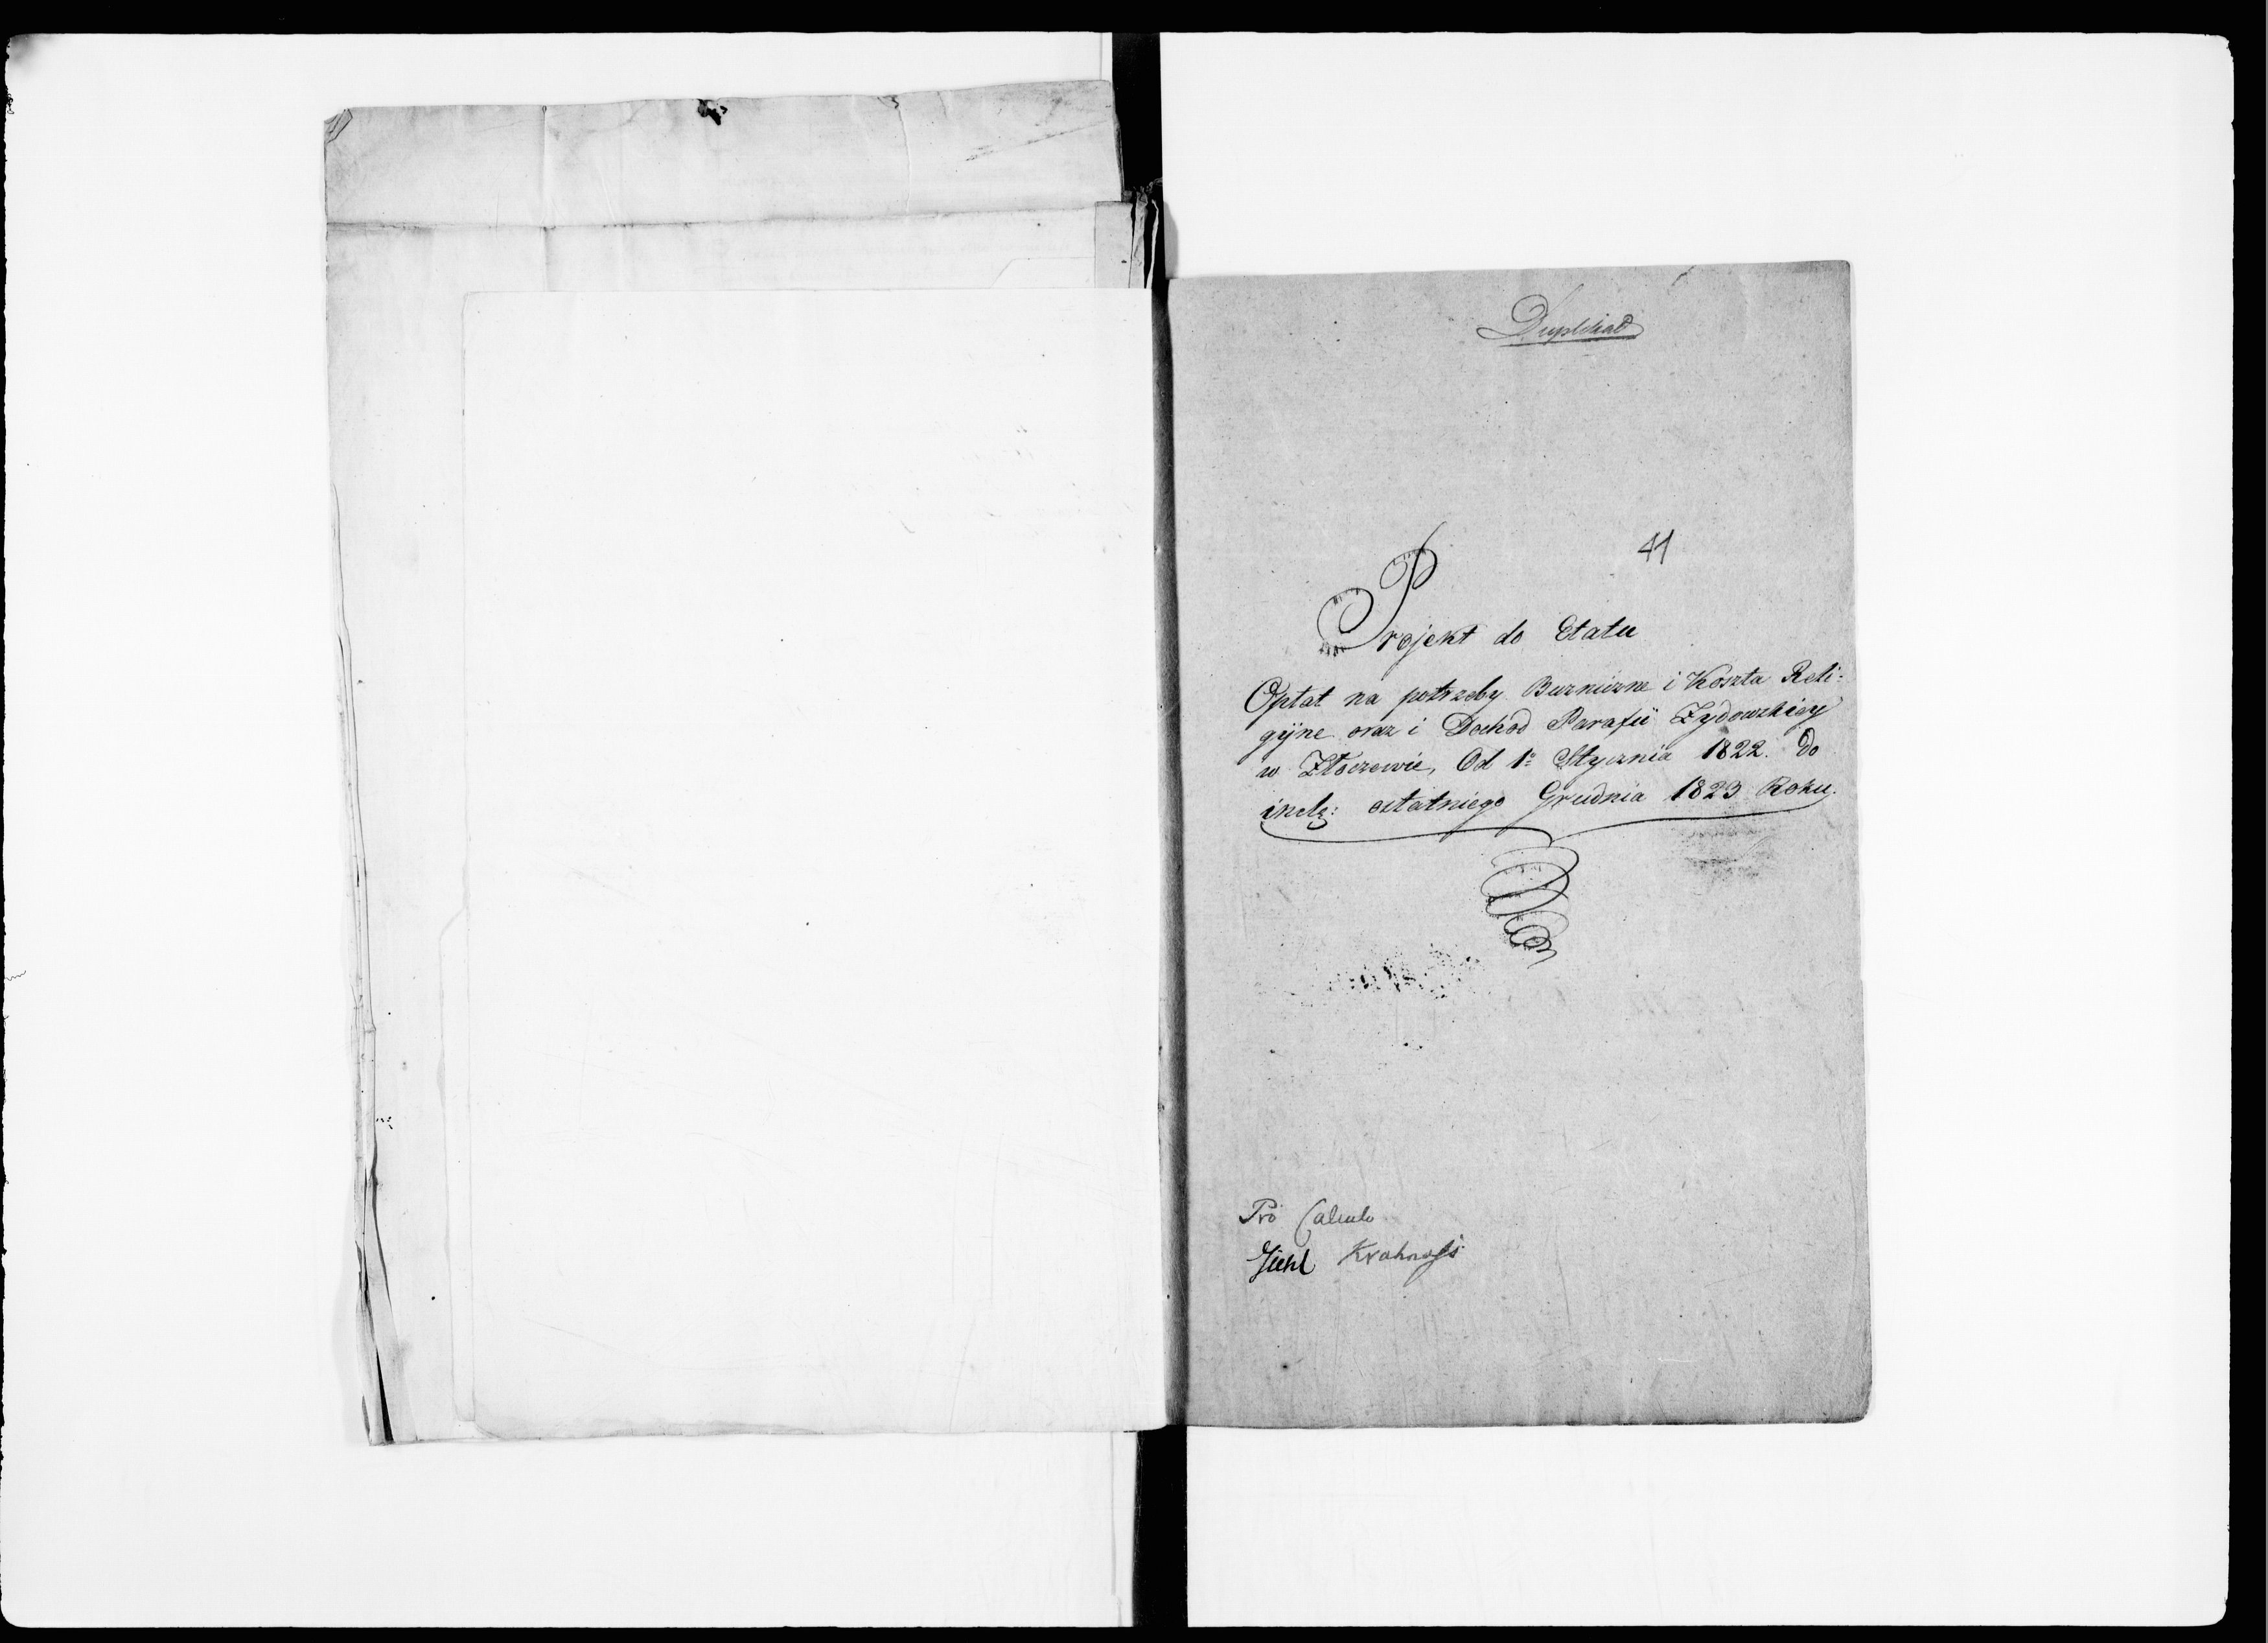 Duplikat
41
Projekt do Etatu
Opłat na potrzeby Buzniczne i Koszta Reli-
gijne oraz i Dochod Parafii Zydowskiey
w Złoczewie, Od 1º Stycznia 1822. do
incl: ostatniego Grudnia 1823 Roku.
Pro Calculo